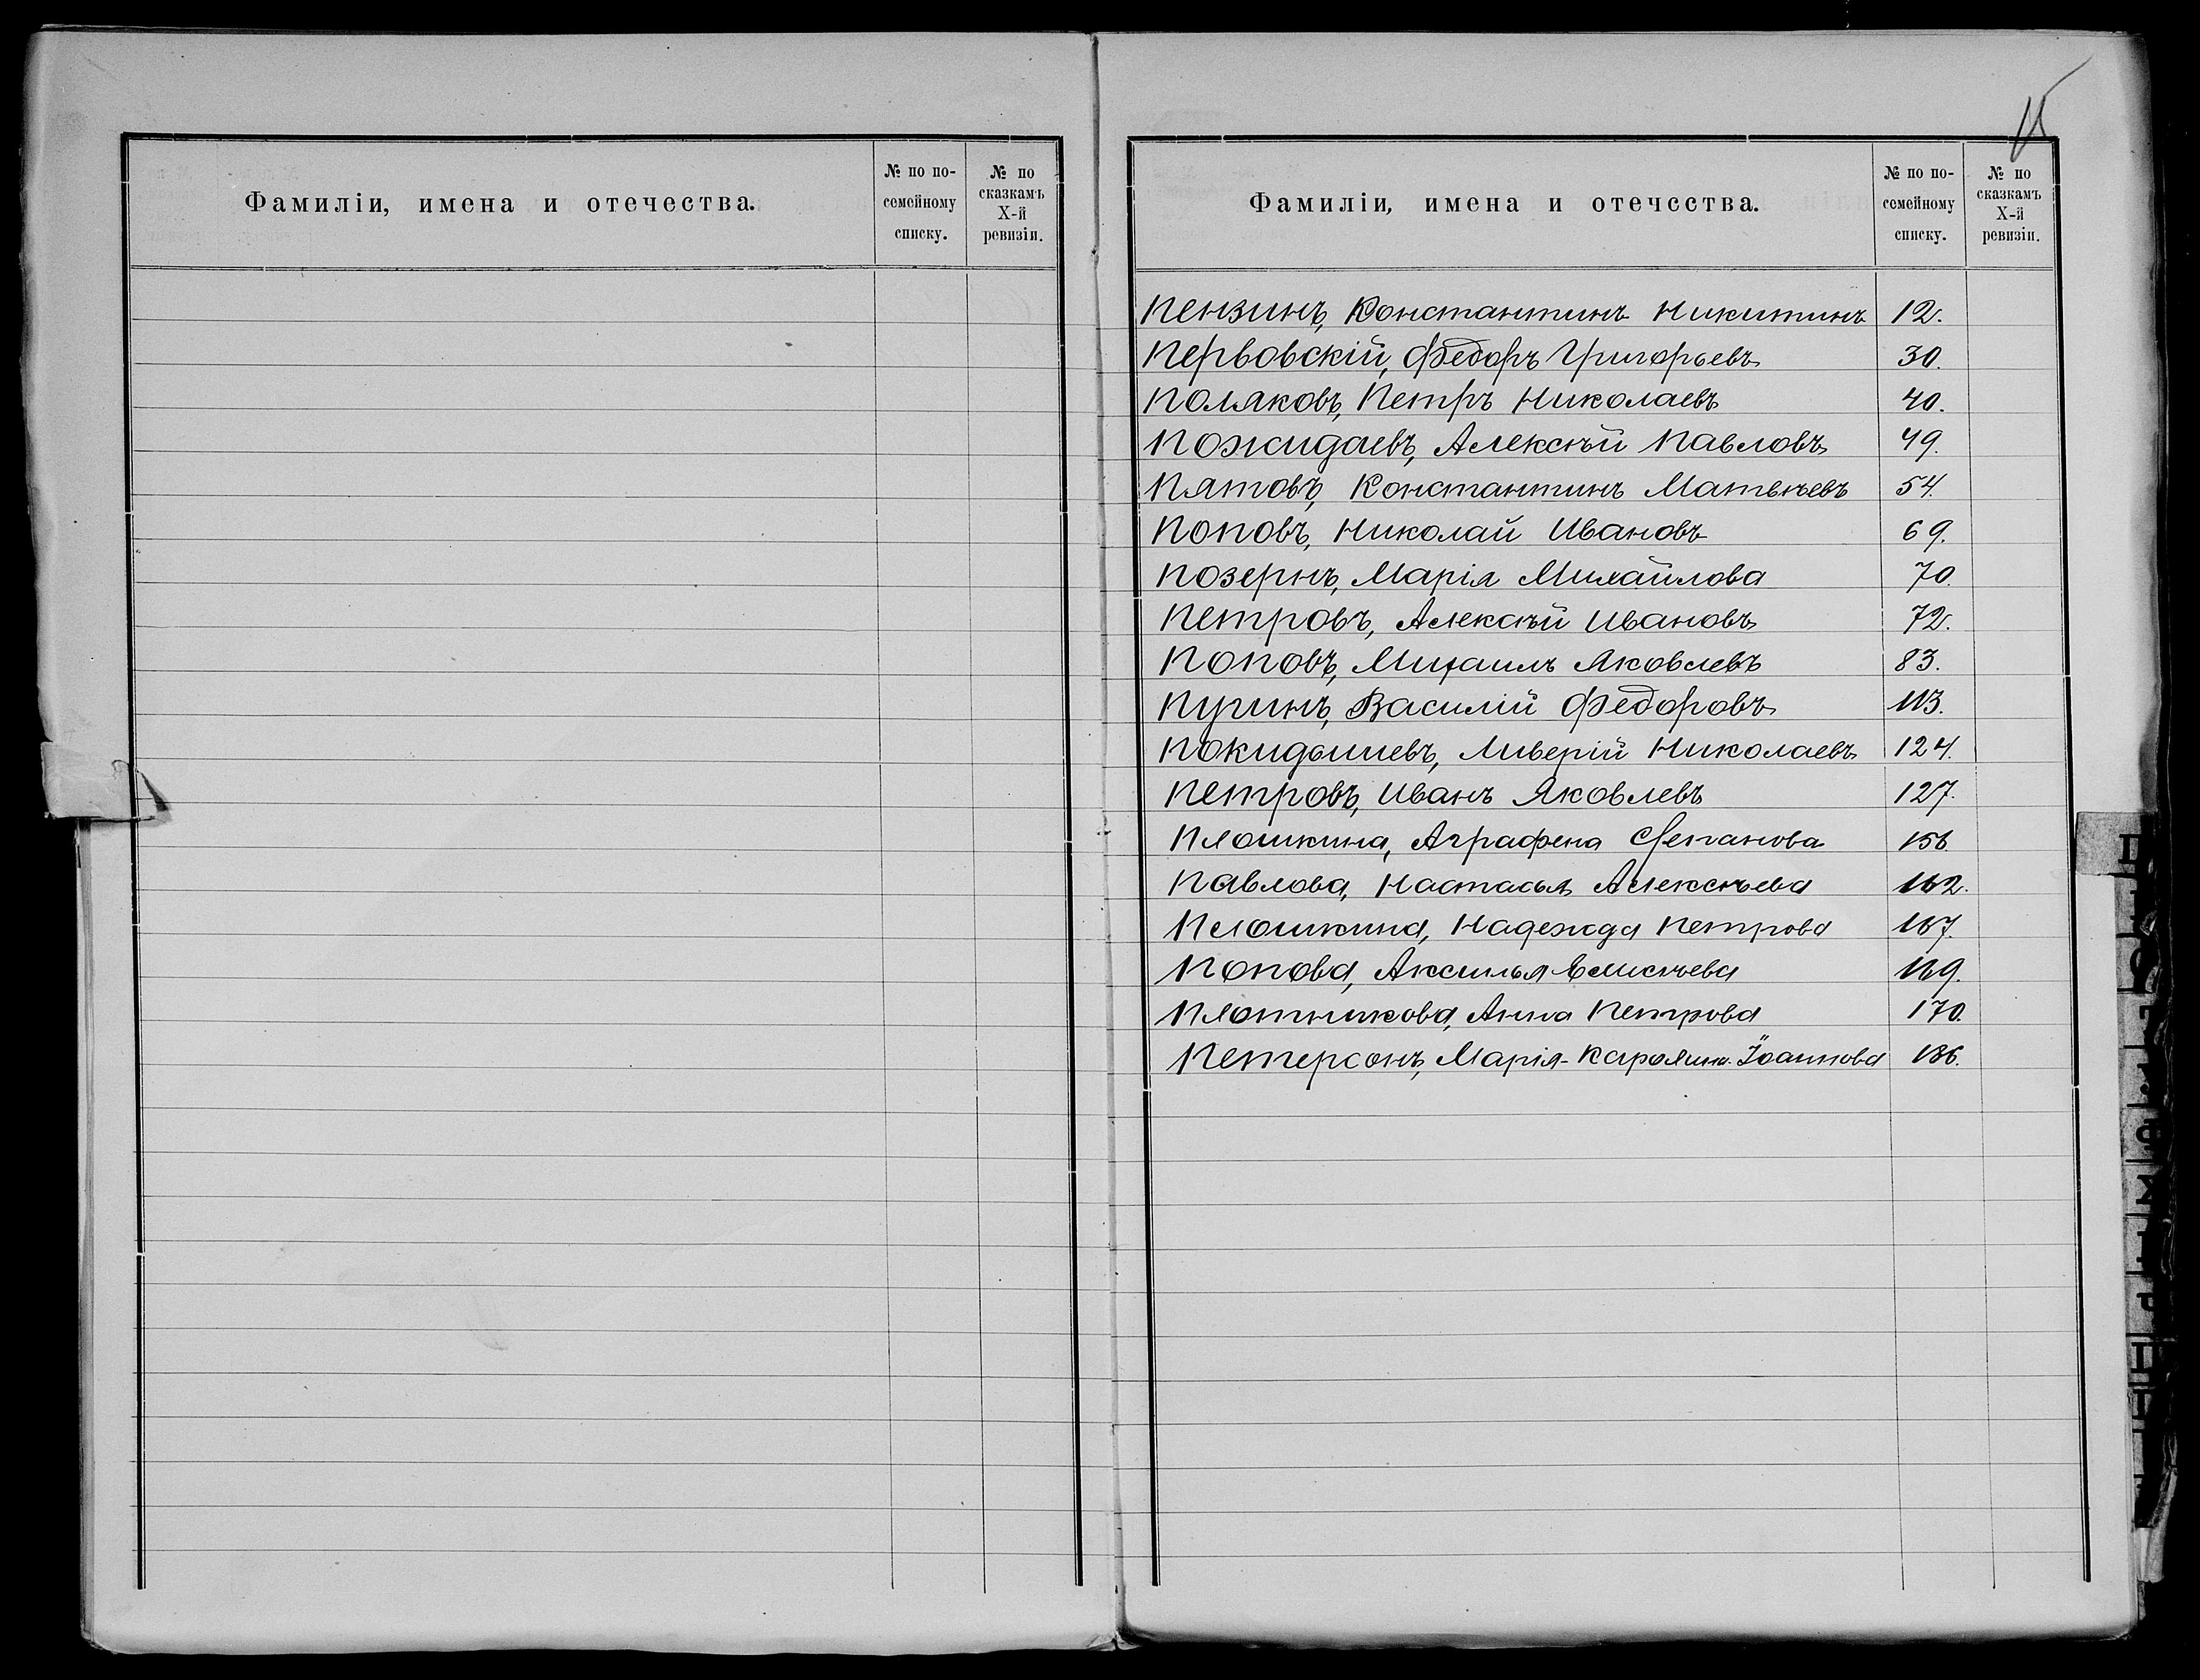 15
Фамиліи, имена и отечества.
№ по по-
семейному
списку.
№ по
сказкамъ
X-й
ревизіи.
Фамиліи, имена и отечества.
№ по по-
семейному
списку.
№ по
сказкамъ
X-й
ревизіи.
Пензинъ, Константинъ Никитинъ 12.
Перьвовскій, Федоръ Григорьевъ 30.
Поляковъ, Петръ Николаевъ 40.
Пожидаевъ, Алексѣй Павловъ 49.
Пятовъ, Константинъ Матвѣевъ 54.
Поповъ, Николай Ивановъ 69.
Позернъ, Марія Михайлова 70.
Петровъ, Алексѣй Ивановъ 72.
Поповъ, Михаилъ Яковлевъ 83.
Пугинъ, Василій Федоровъ 113.
Покидышевъ, Ливерій Николаевъ 124.
Петровъ, Иванъ Яковлевъ 127.
Плошкина, Аграфена Степанова 156.
Павлова, Настасья Алексѣева 162.
Плошкина, Надежда Петрова 167.
Попова, Аксинья Елисѣева 169.
Плотникова, Анна Петрова 170.
Петерсонъ, Марія-Каролина Іоаннова 186.